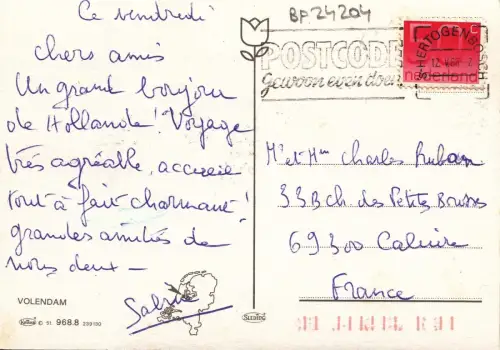 Ce vendredi
chers amis
Un grand bonjour
de Hollande! Voyage
très agréable, accueil
tout à fait charmant!
grandes amitiés de
nous deux —
VOLENDAM
51 968.8
BP24204
POSTCODE
Gewoon even doen
S-HERTOGENBOSCH
nederland
Mr et Mme Charles
33 Bch des Petites Brosses
69300 Caluire
France